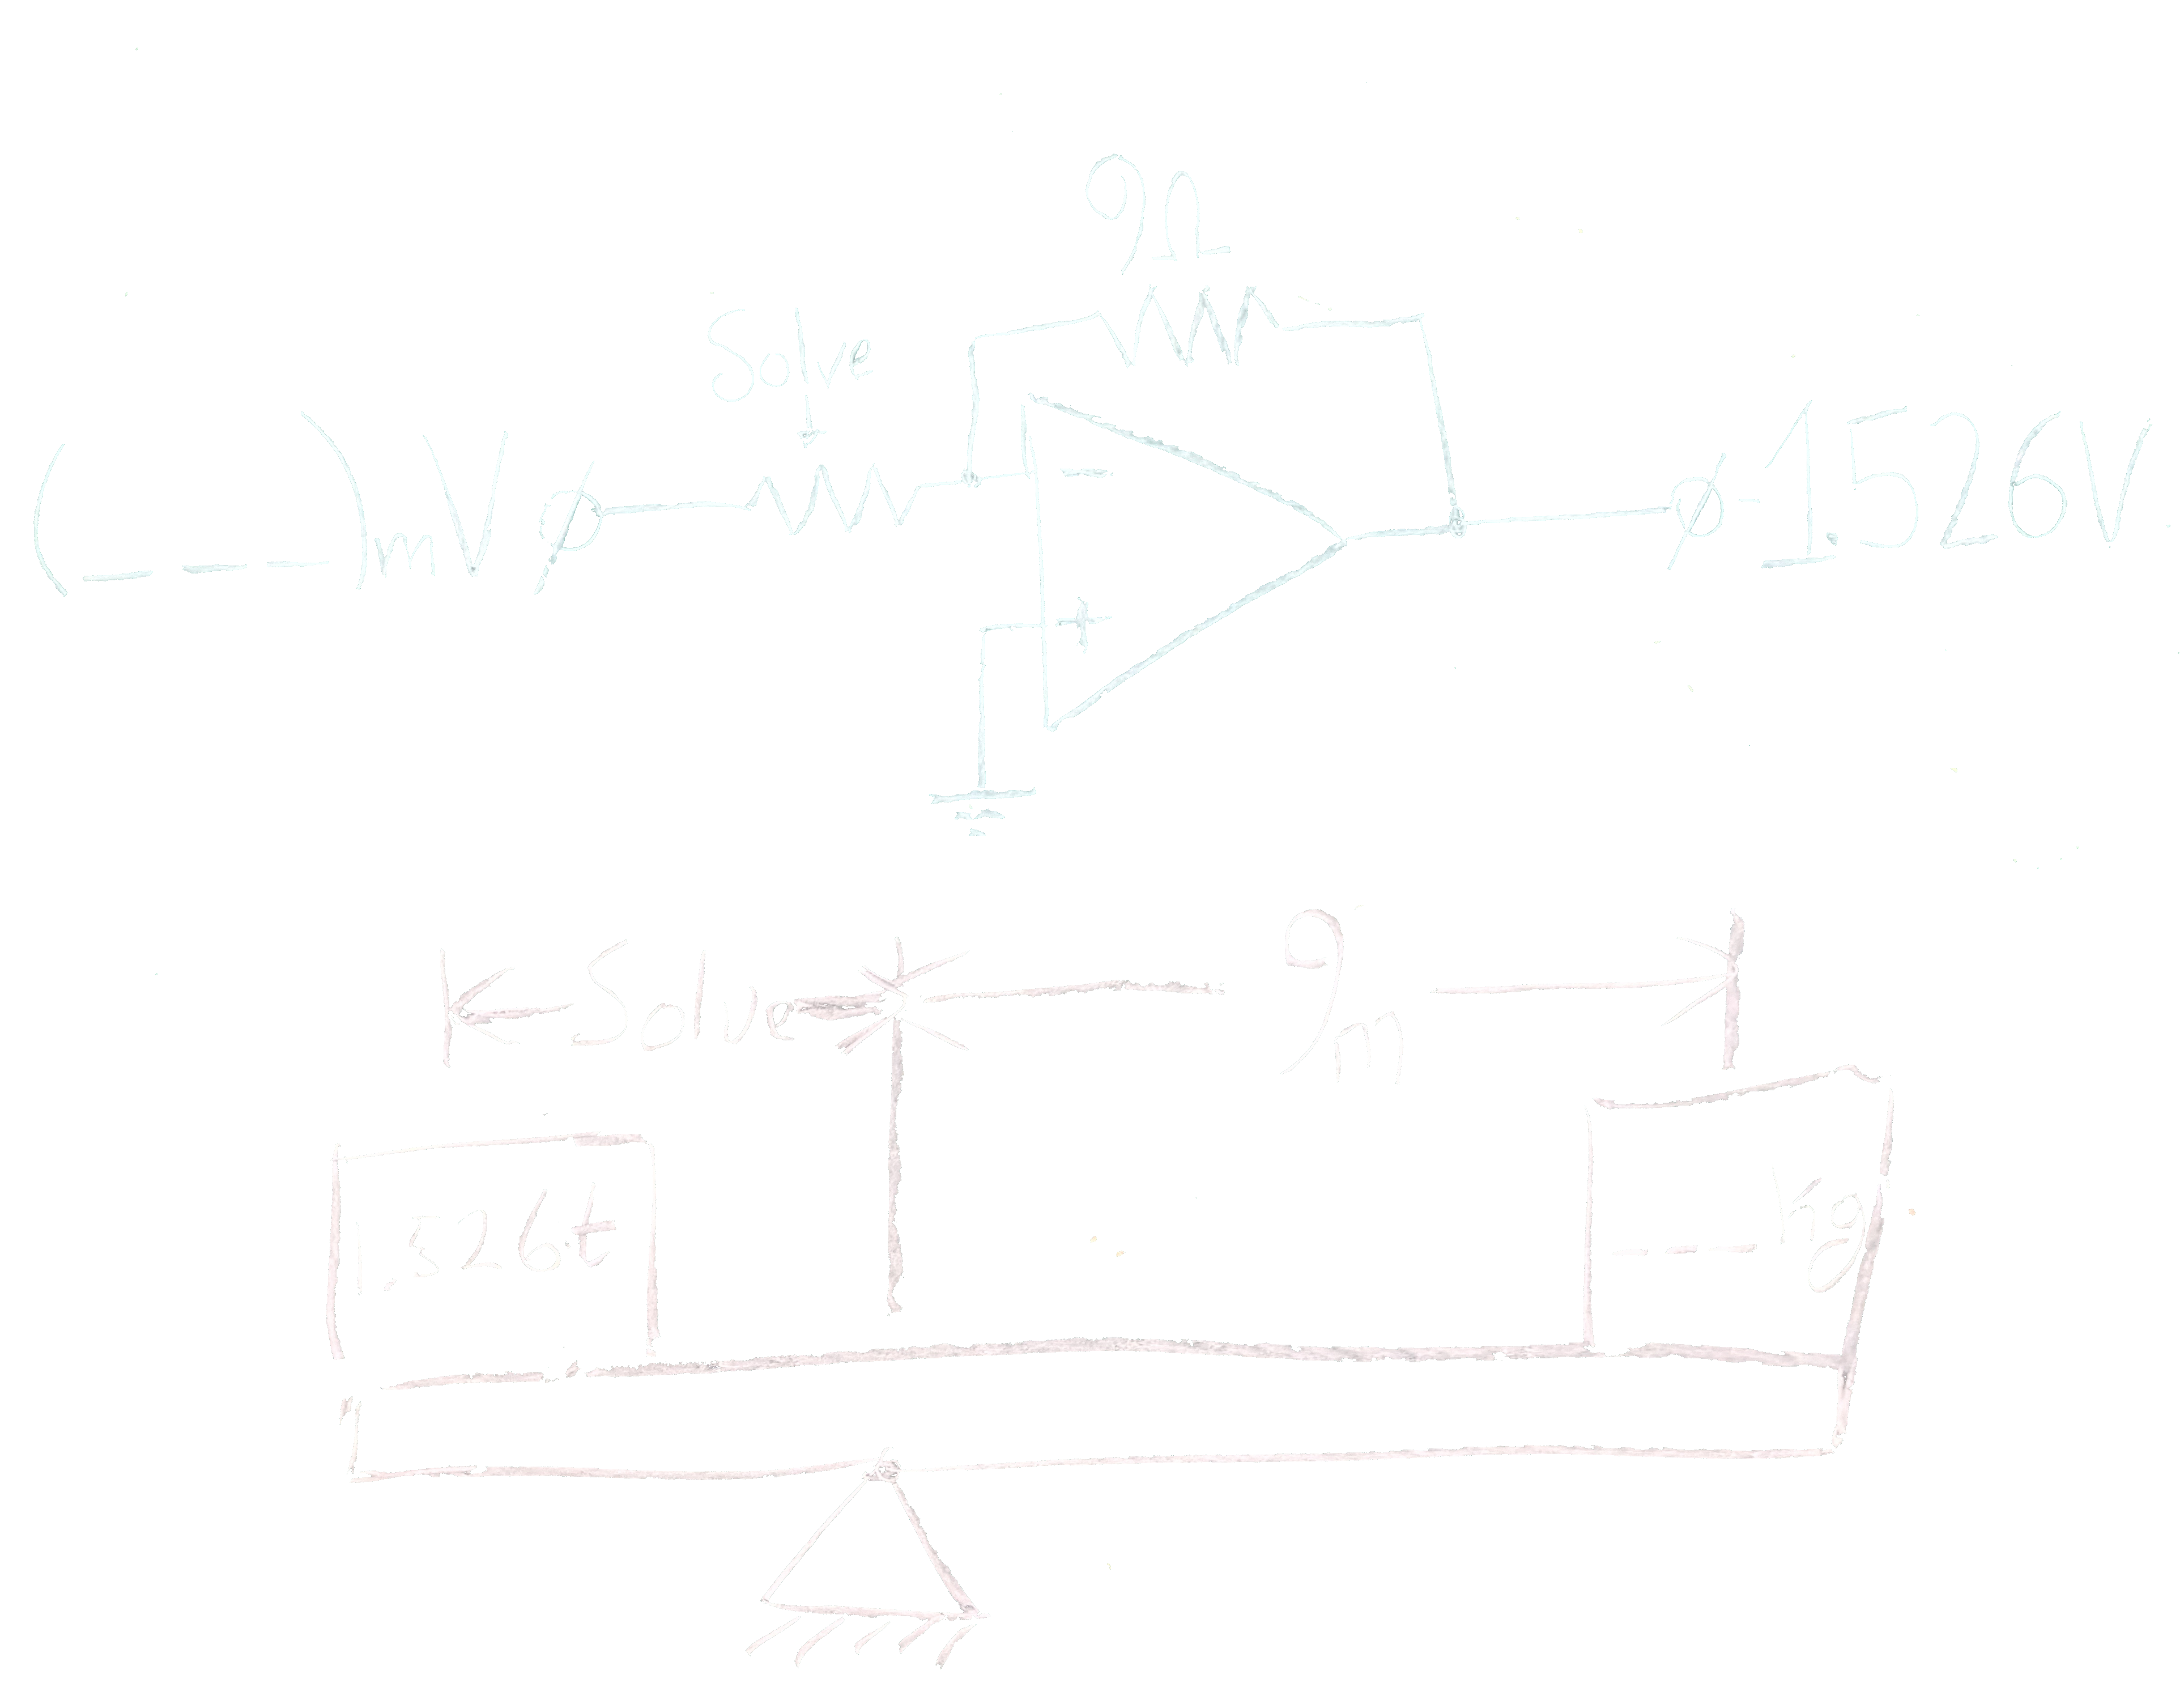 9Ω
Solve
(_ _ _)mV
-1.526V
-
+
Solve
9m
1.526t
_ _ _ kg